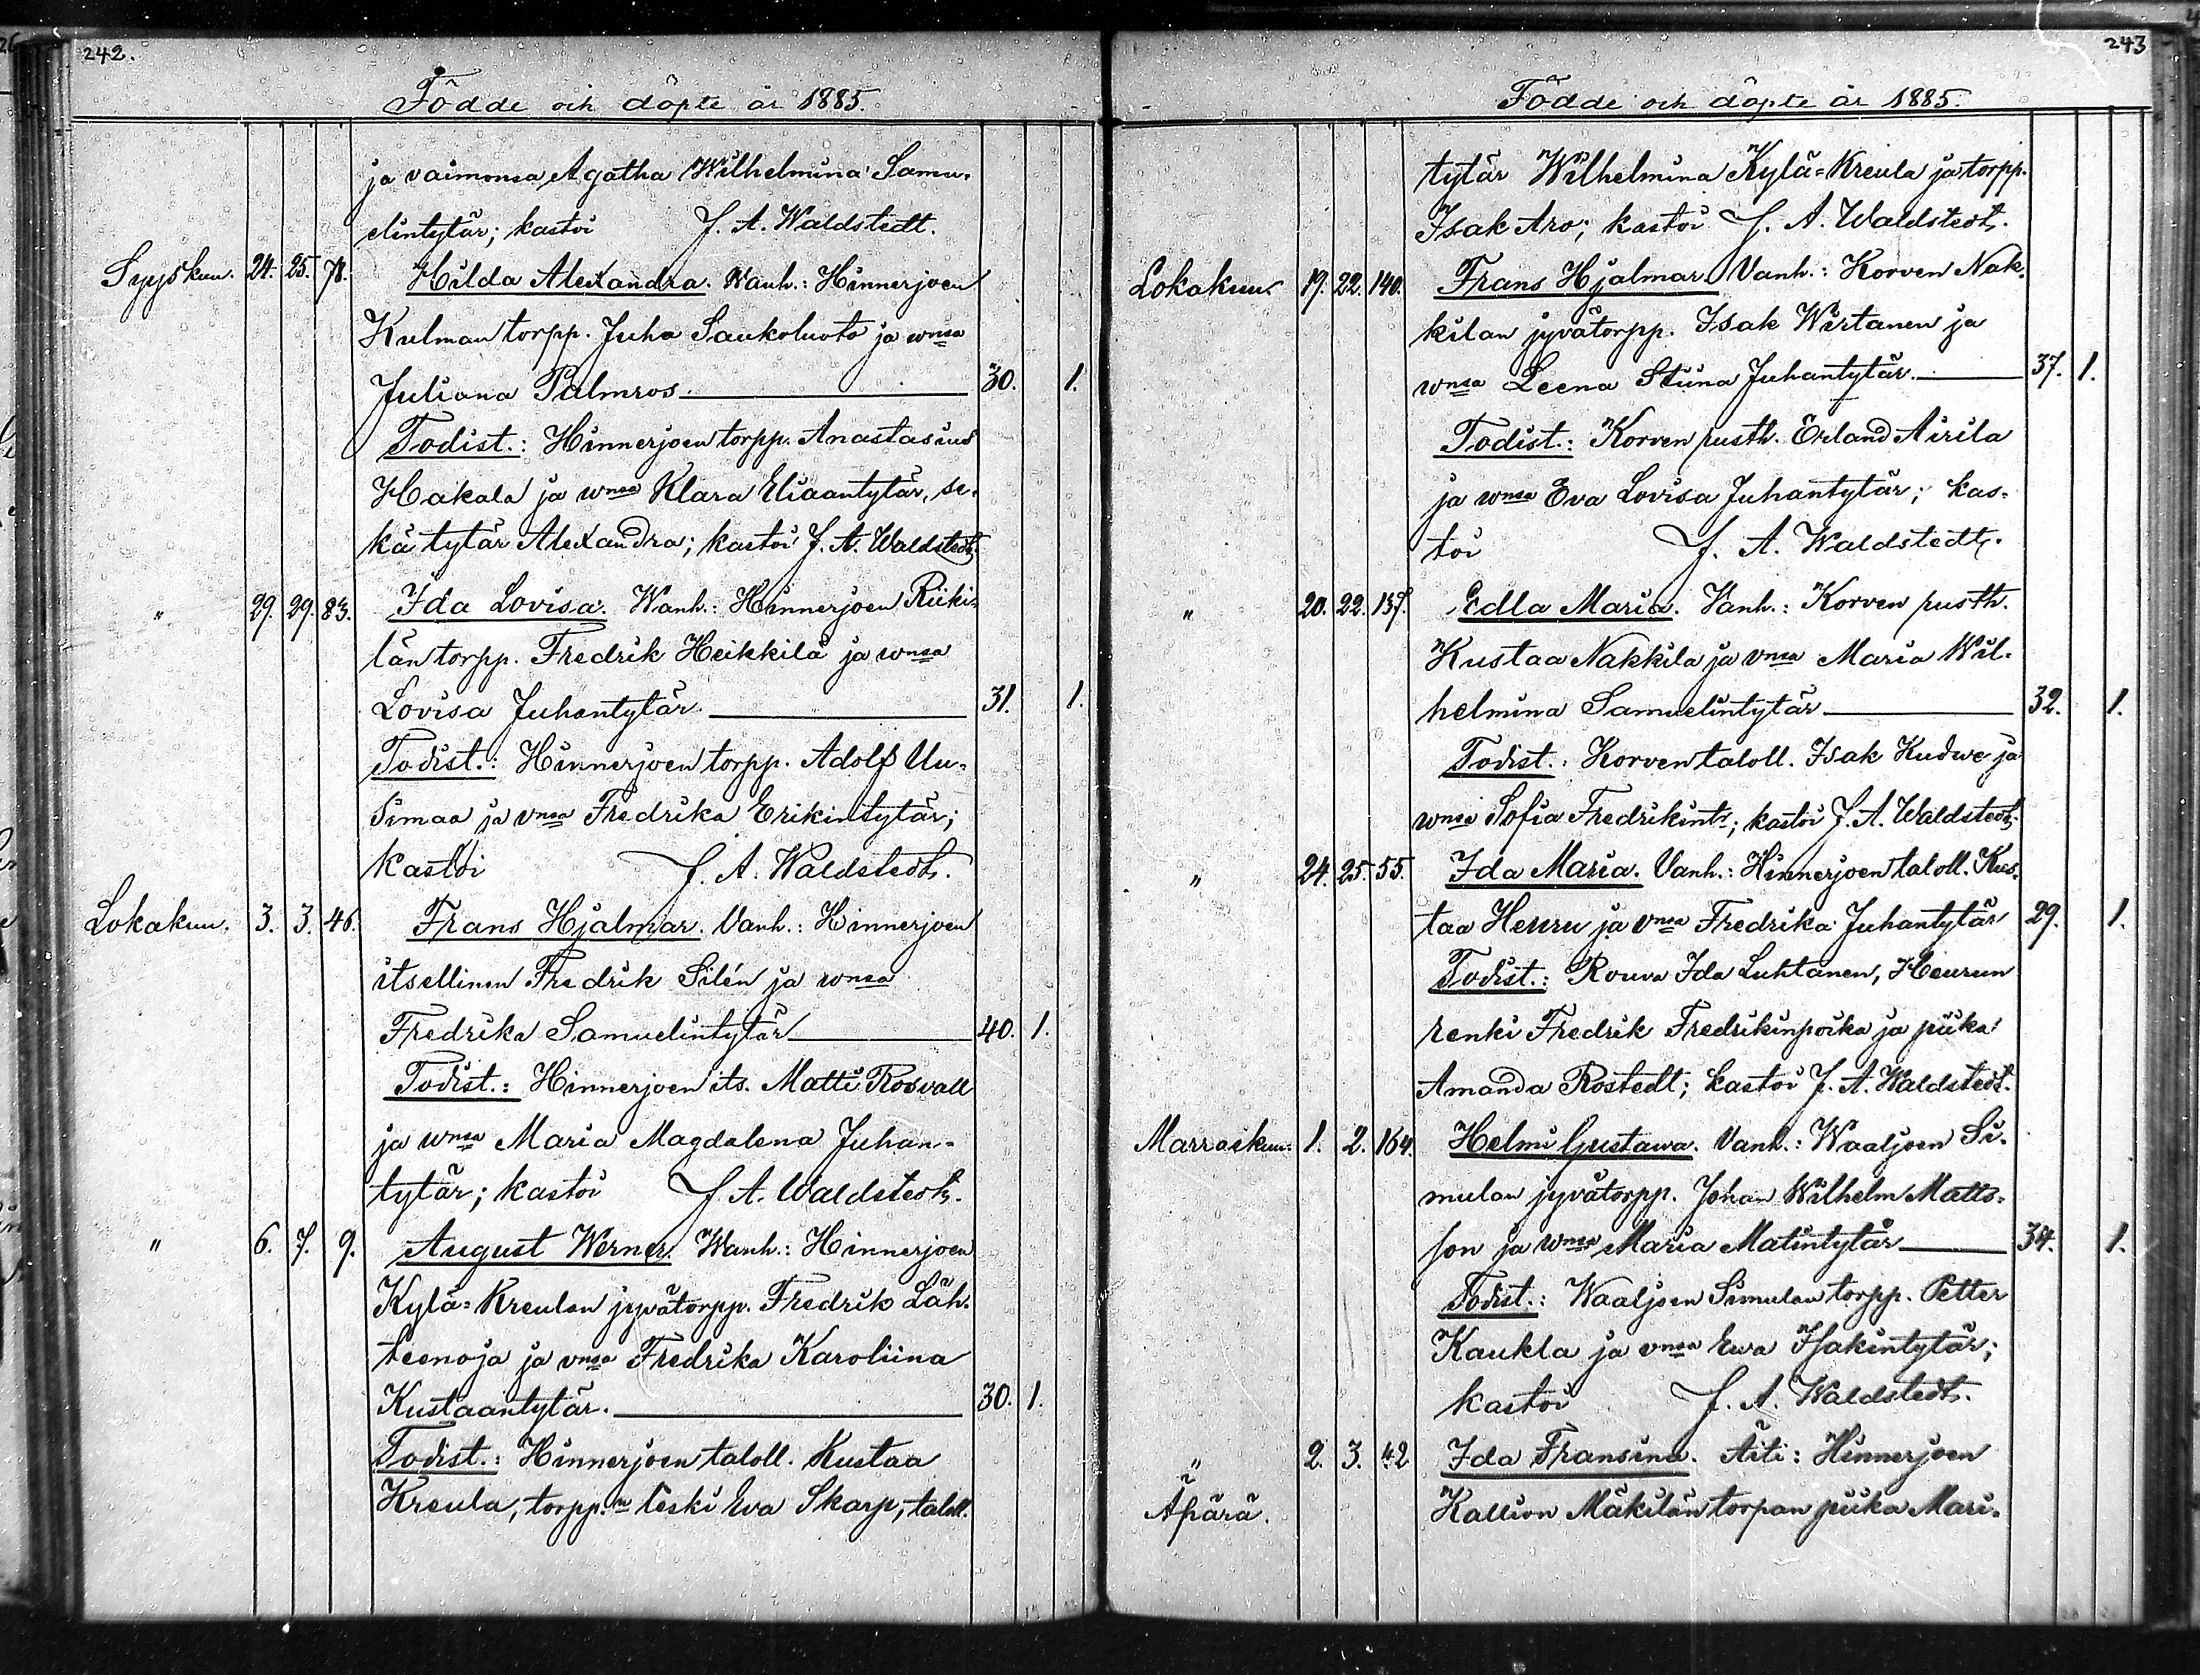 242.
Födde och döpte år 1885.
ja vaimonsa Agatha Wilhelmina Samu-
elintytär; kastoi J. A. Waldstedt.
Syyskuu. 24. 25. 78. Hilda Alexandra. Wanh.: Hinnerjoen
Kulman torpp. Juha Saukoluoto ja wnsa
Juliana Palmros. 30. 1.
Todist.: Hinnerjoen torpp. Anastasius
Hakala ja wnsa Klara Eliaantytär, se-
kä tytär Alexandra; kastoi J. A. Waldstedt.
" 29. 29. 83. Ida Lovisa. Wanh.: Hinnerjoen Riiki-
län torpp. Fredrik Heikkilä ja wnsa
Lovisa Juhantytär. 31. 1.
Todist.: Hinnerjoen torpp. Adolf Uu-
simaa ja vnsa Fredrika Erikintytär;
kastoi J. A. Waldstedt.
Lokakuu. 3. 3. 46. Frans Hjalmar. Vanh.: Hinnerjoen
itsellinen Fredrik Silén ja wnsa
Fredrika Samuelintytär 40. 1.
Todist.: Hinnerjoen its. Matti Rosvall
ja wnsa Maria Magdalena Juhan-
tytär; kastoi J. A. Waldstedt.
" 6. 7. 9. August Werner. Wanh.: Hinnerjoen
Kylä-Kreulan jyvätorpp. Fredrik Läh-
teenoja ja vnsa Fredrika Karoliina
Kustaantytär. 30. 1.
Todist.: Hinnerjoen taloll. Kustaa
Kreula, torpp.n leski Eva Skarp, taloll.
243
Födde och döpte år 1885.
tytär Wilhelmina Kylä-Kreula ja torpp.
Isak Aro; kastoi J. A. Waldstedt.
Lokakuu. 19. 22. 140. Frans Hjalmar. Vanh.: Korven Nak-
kilan jyvätorpp. Isak Wirtanen ja
wnsa Leena Stiina Juhantytär. 37. 1.
Todist.: Korven rusth. Erland Airila
ja wnsa Eva Lovisa Juhantytär; kas-
toi J. A. Waldstedt.
" 20. 22. 137. Edla Maria. Vanh.: Korven rusth.
Kustaa Nakkila ja vnsa Maria Wil-
helmina Samuelintytär 32. 1.
Todist.: Korven taloll. Isak Kudwe ja
wnsa Sofia Fredrikintr; kastoi J. A. Waldstedt.
" 24. 25. 55. Ida Maria. Vanh.: Hinnerjoen taloll. Kus-
taa Heuru ja vnsa Fredrika Juhantytär 29. 1.
Todist.: Rouva Ida Luhtanen, Heurun
renki Fredrik Fredrikinpoika ja piika
Amanda Rostedt; kastoi J. A. Waldstedt.
Marraskuu. 1. 2. 164. Helmi Gustawa. Vanh.: Waaljoen Si-
mulan jyvätorpp. Johan Wilhelm Matts-
son ja wnsa Maria Matintytär 34. 1.
Todist.: Waaljoen Simulan torpp. Petter
Kaukla ja vnsa Ewa Isakintytär;
kastoi J. A. Waldstedt.
" 2. 3. 42 Ida Fransina. Äiti: Hinnerjoen
Äpärä. Kallion Mäkilän torpan piika Mari-